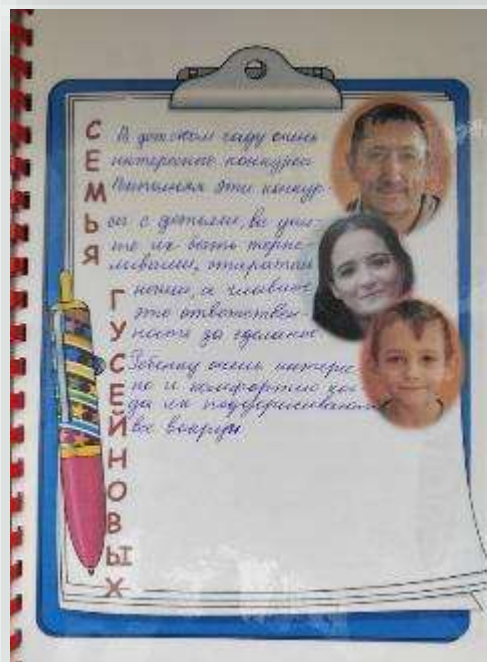 СЕМЬЯ ГУСЕЙНОВЫХ
В детском саду очень
интересные конкурсы
Выполняя эти конкур-
сы с детьми, вы учи-
те их быть терпе-
ливыми, старатель
ными, а главное
это ответствен-
ность за сделаное.
Ребенку очень интерес
но и комфортно ког
да их поддерживают
все вокруг.